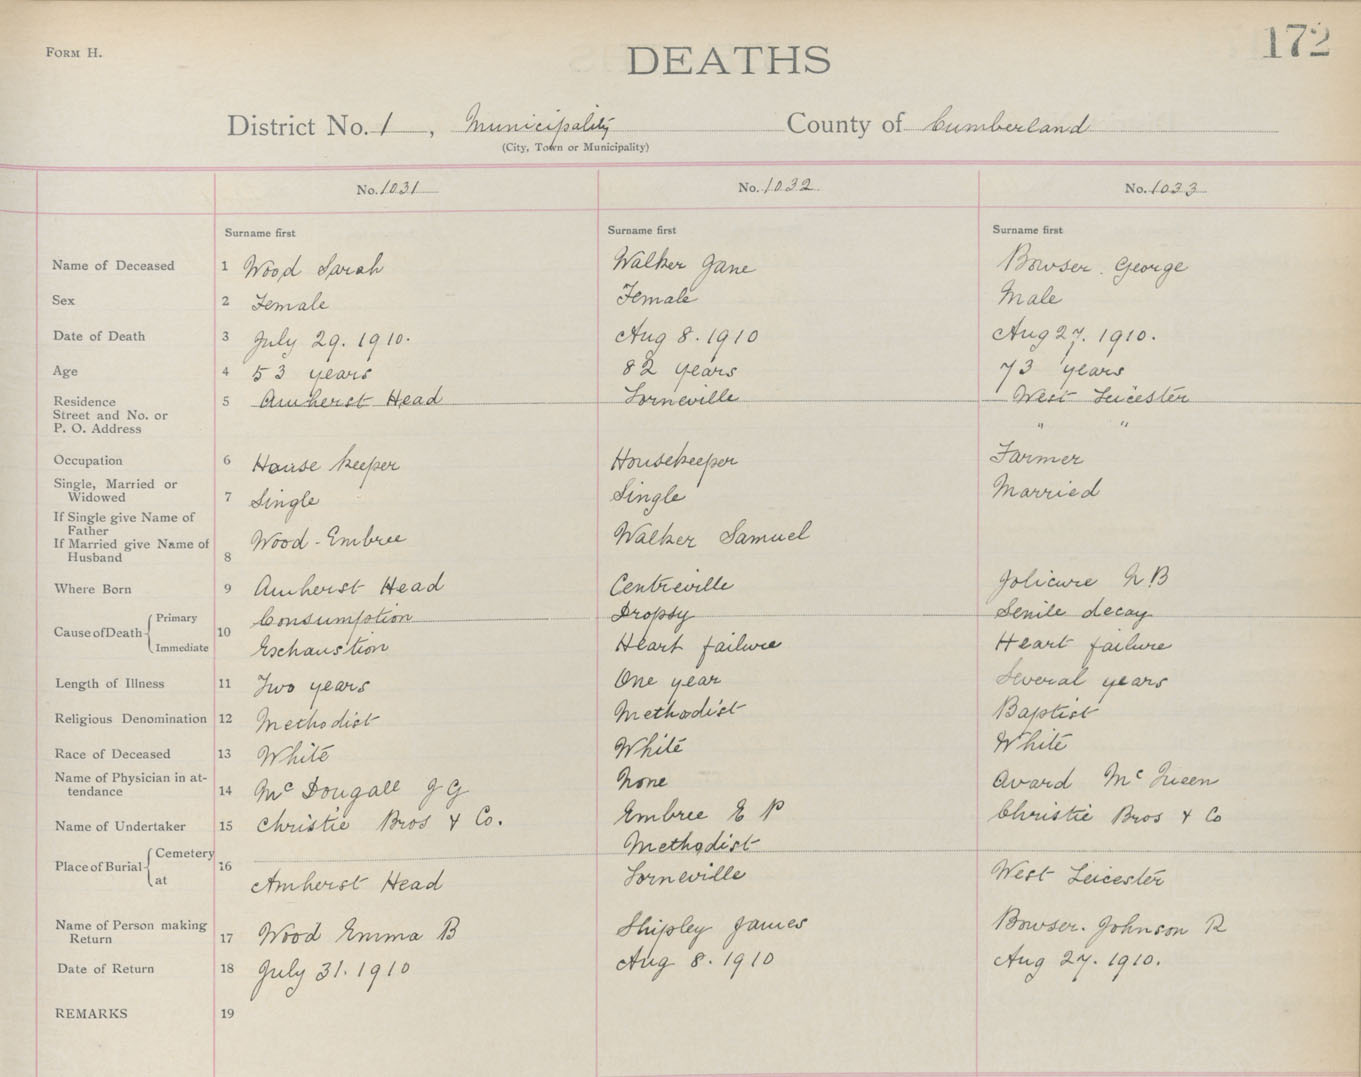 Form H.
172
DEATHS
District No. 1, Municipality County of Cumberland
(City, Town or Municipality)
No. 1031 No. 1032 No. 1033
Surname first Surname first Surname first
Name of Deceased 1 Wood Sarah Walker Jane Bowser. George
Sex 2 Female Female Male
Date of Death 3 July 29. 1910. Aug 8. 1910 Aug 27. 1910.
Age 4 53 years 82 years 73 years
Residence 5 Amherst Head Lorneville West Leicester
Street and No. or
P. O. Address " "
Occupation 6 House keeper Housekeeper Farmer
Single, Married or
Widowed 7 Single Single Married
If Single give Name of
Father
If Married give Name of
Husband 8 Wood - Embree Walker Samuel
Where Born 9 Amherst Head Centreville Jolicure N.B
Cause of Death 10
Primary Consumption Dropsy Senile decay
Immediate Exhaustion Heart failure Heart failure
Length of Illness 11 Two years One year Several years
Religious Denomination 12 Methodist Methodist Baptist
Race of Deceased 13 White White White
Name of Physician in at-
tendance 14 Mc Dougall J G None Avard Mc Queen
Name of Undertaker 15 Christie Bros & Co. Embree E P Christie Bros & Co
Place of Burial 16
Cemetery Methodist
at Amherst Head Lorneville West Leicester
Name of Person making
Return 17 Wood Emma B Shipley James Bowser. Johnson R
Date of Return 18 July 31. 1910 Aug 8. 1910 Aug 27. 1910.
REMARKS 19